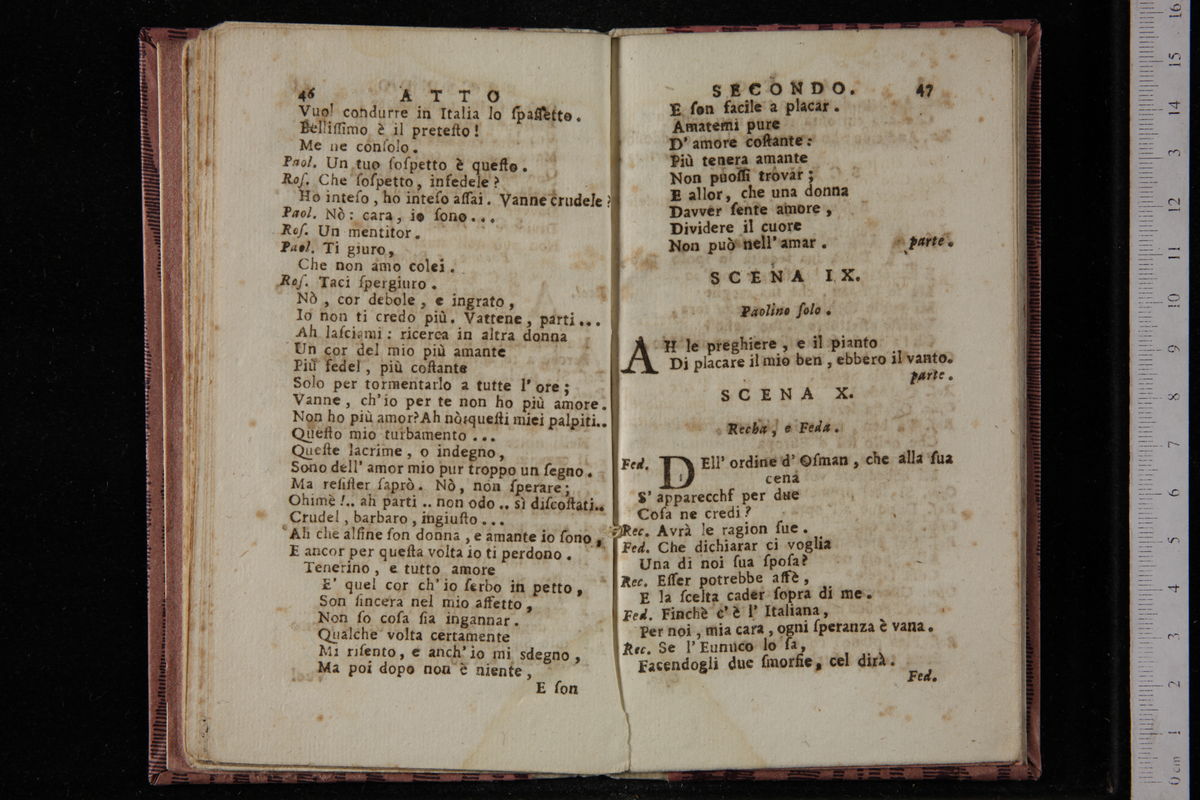 46 ATTO
Vuol condurre in Italia lo ſpaſſetto.
Belliſſimo è il preteſto!
Me ne conſolo.
Paol. Un tuo ſoſpetto è queſto.
Roſ. Che ſoſpetto, infedele?
Ho inteſo, ho inteſo aſſai. Vanne crudele?
Paol. Nò: cara, io ſono...
Roſ. Un mentitor.
Paol. Ti giuro,
Che non amo colei.
Roſ. Taci ſpergiuro.
Nò, cor debole, e ingrato,
Io non ti credo più. Vattene, parti...
Ah laſciami: ricerca in altra donna
Un cor del mio più amante
Più fedel, più coſtante
Solo per tormentarlo a tutte l' ore;
Vanne, ch'io per te non ho più amore.
Non ho più amor? Ah nò: queſti miei palpiti..
Queſto mio turbamento...
Queſte lacrime, o indegno,
Sono dell' amor mio pur troppo un ſegno.
Ma reſiſter ſaprò. Nò, non ſperare;
Ohimè!.. ah parti.. non odo.. sì diſcoſtati..
Crudel, barbaro, ingiuſto...
Ah che alfine ſon donna, e amante io ſono,
E ancor per queſta volta io ti perdono.
Tenerino, e tutto amore
E' quel cor ch'io ſerbo in petto,
Son ſincera nel mio affetto,
Non ſo coſa ſia ingannar.
Qualche volta certamente
Mi riſento, e anch'io mi sdegno,
Ma poi dopo non è niente,
E ſon
SECONDO. 47
E ſon facile a placar.
Amatemi pure
D' amore coſtante:
Più tenera amante
Non puoſſi trovar;
E allor, che una donna
Davver ſente amore,
Dividere il cuore
Non può nell' amar. parte.
SCENA IX.
Paolino ſolo.
AH le preghiere, e il pianto
Di placare il mio ben, ebbero il vanto.
parte.
SCENA X.
Recha, e Feda.
Fed. DEll' ordine d' Oſman, che alla ſua
cena
S' apparecchſ per due
Coſa ne credi?
Rec. Avrà le ragion ſue.
Fed. Che dichiarar ci voglia
Una di noi ſua ſpoſa?
Rec. Eſſer potrebbe affè,
E la ſcelta cader ſopra di me.
Fed. Finchè c' è l' Italiana,
Per noi, mia cara, ogni ſperanza è vana.
Rec. Se l'Eunuco lo ſa,
Facendogli due ſmorfie, cel dirà.
Fed.
16
15
14
13
12
11
10
9
8
7
6
5
4
3
2
1
0 cm